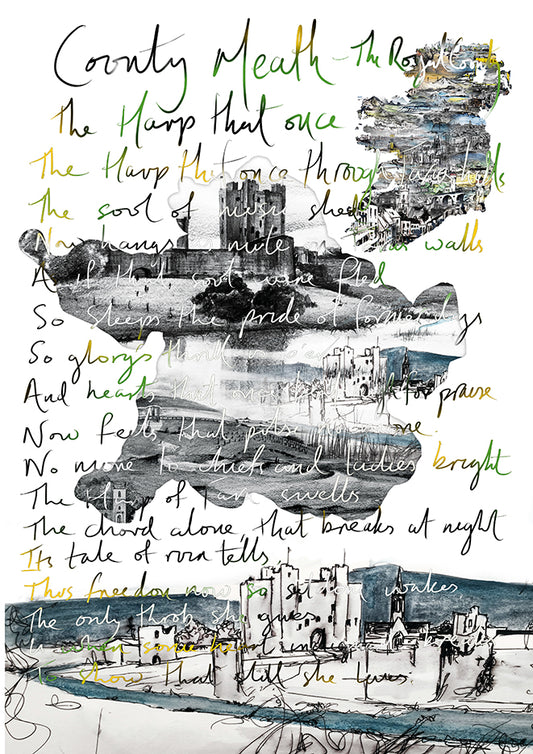 County Meath - The Royal County
The Harp that once
The Harp that once through Tara's halls
The soul of music shed
Now hangs as mute on Tara's walls
As if that soul were fled
So sleeps the pride of former days
So glory's thrill is o'er
And hearts that once beat high for praise
Now feels that pulse
No more to chiefs and ladies bright
The Harp of Tara swells
The chord alone, that breaks at night
Its tale of ruin tells
Thus freedom now so seldom wakes
The only throb she gives
Is when some heart indignant breaks
To show that still she lives.